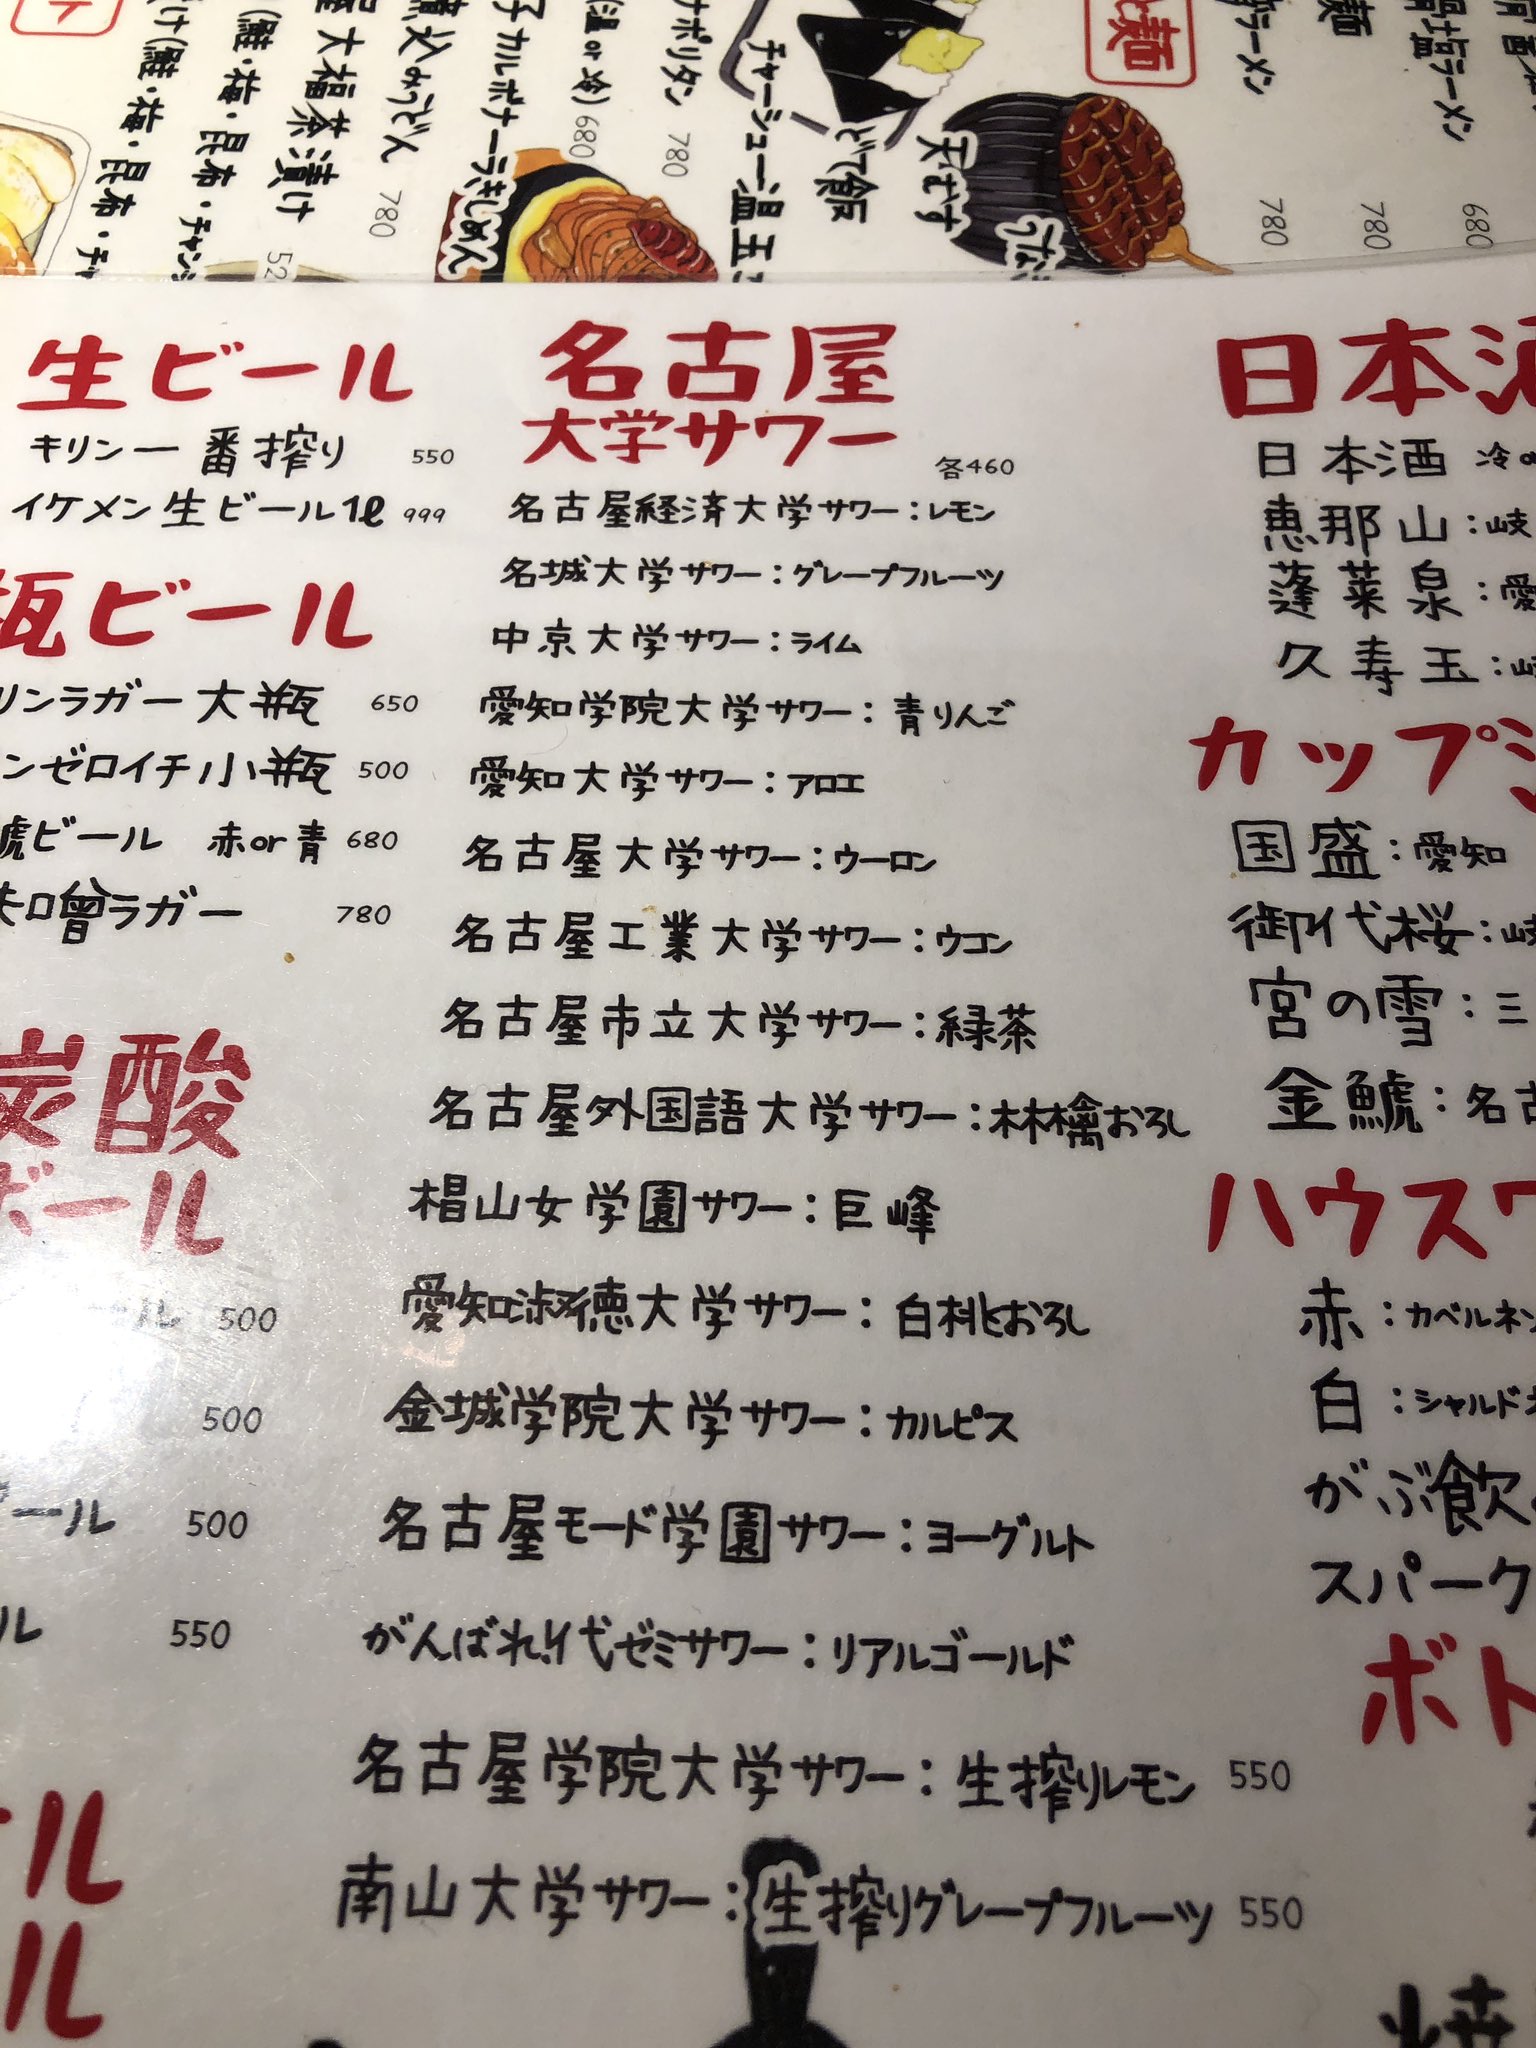 天むす
どて飯
780
780
680
ナポリタン 780
680
煮込みうどん 780
大福茶漬け
生ビール
キリン一番搾り 550
イケメン生ビール1ℓ 999
瓶ビール
リンラガー大瓶 650
ンゼロイチ小瓶 500
虎ビール 赤or青 680
味噌ラガー 780
炭酸
ボール
ール 500
500
ール 500
ル 550
ール
ル
名古屋
大学サワー 各460
名古屋経済大学サワー:レモン
名城大学サワー:グレープフルーツ
中京大学サワー:ライム
愛知学院大学サワー:青りんご
愛知大学サワー:アロエ
名古屋大学サワー:ウーロン
名古屋工業大学サワー:ウコン
名古屋市立大学サワー:緑茶
名古屋外国語大学サワー:林檎おろし
椙山女学園サワー:巨峰
愛知淑徳大学サワー:白桃おろし
金城学院大学サワー:カルピス
名古屋モード学園サワー:ヨーグルト
がんばれ!代ゼミサワー:リアルゴールド
名古屋学院大学サワー:生搾りレモン 550
南山大学サワー:生搾りグレープフルーツ 550
日本酒
日本酒 冷or
恵那山:岐
蓬莱泉:愛
久寿玉:岐
カップ
国盛:愛知
御代桜:岐
宮の雪:三
金鯱:名古
ハウスワ
赤:カベルネソ
白:シャルドネ
がぶ飲
スパーク
ボト
焼